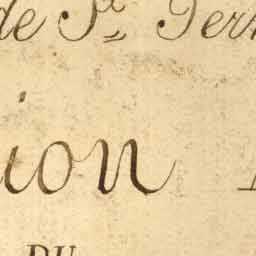 de St. Ger
ion
DU